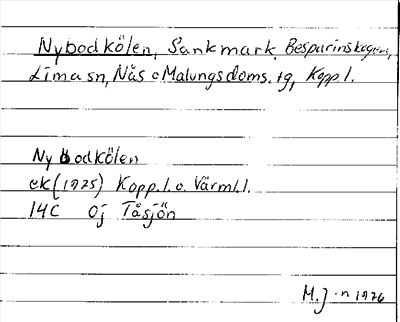 Nybodkölen, Sankmark, Besparinskogen,
Lima sn, Nås o Malungs doms. tg, Kopp.l.
Nybodkölen
ek (1925) Kopp.l. o. Värml.l.
14C Öj Tåsjön
M.J-n 1976